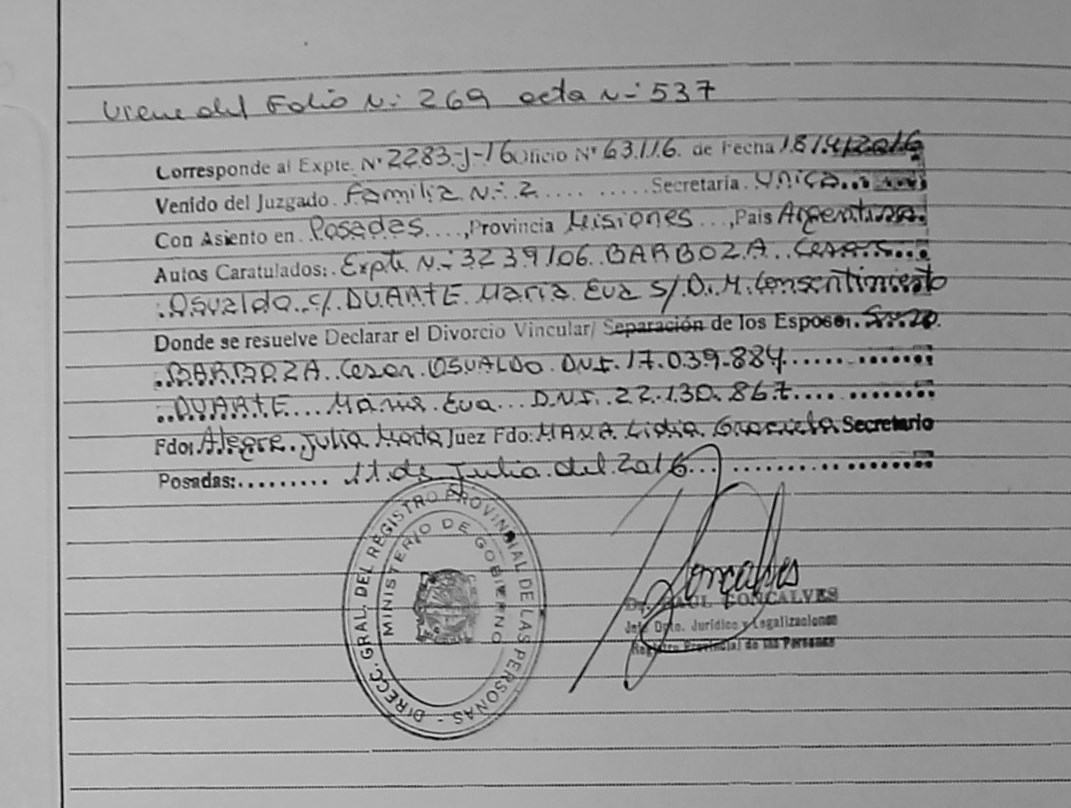 Viene del Folio N: 269 acta N: 537
Corresponde al Expte. Nº 2283-J-16 Oficio Nº 631/16. de Fecha 18/4/2016
Venido del Juzgado. Familia N: 2 .... ...... Secretaría. Unica...
Con Asiento en. Posadas....,Provincia Misiones ...,Pais Argentina.
Autos Caratulados: Expte N: 3239/06. BARBOZA.. Cesar...
Osvaldo. c/. DUARTE. Maria. Eva s/ D. M. Consentimiento
Donde se resuelve Declarar el Divorcio Vincular/ Separación de los Esposos.
BARBOZA. Cesar. OSVALDO. D.N.I. 17.039.884.......
DUARTE... Maria. Eva... D.N.I.. 22.130.867.....
Fdo: Alegre. Julia Juez Fdo: Lidia Graciela. Secretario
Posadas:......... 11. de Julio. del. 2016...
DIRECC. GRAL. DEL REGISTRO PROVINCIAL DE LAS PERSONAS -
MINISTERIO DE GOBIERNO
Goncalves
Dr. RAUL GONCALVES
Jefe Dpto. Jurídico y Legalizaciones
Registro Provincial de las Personas